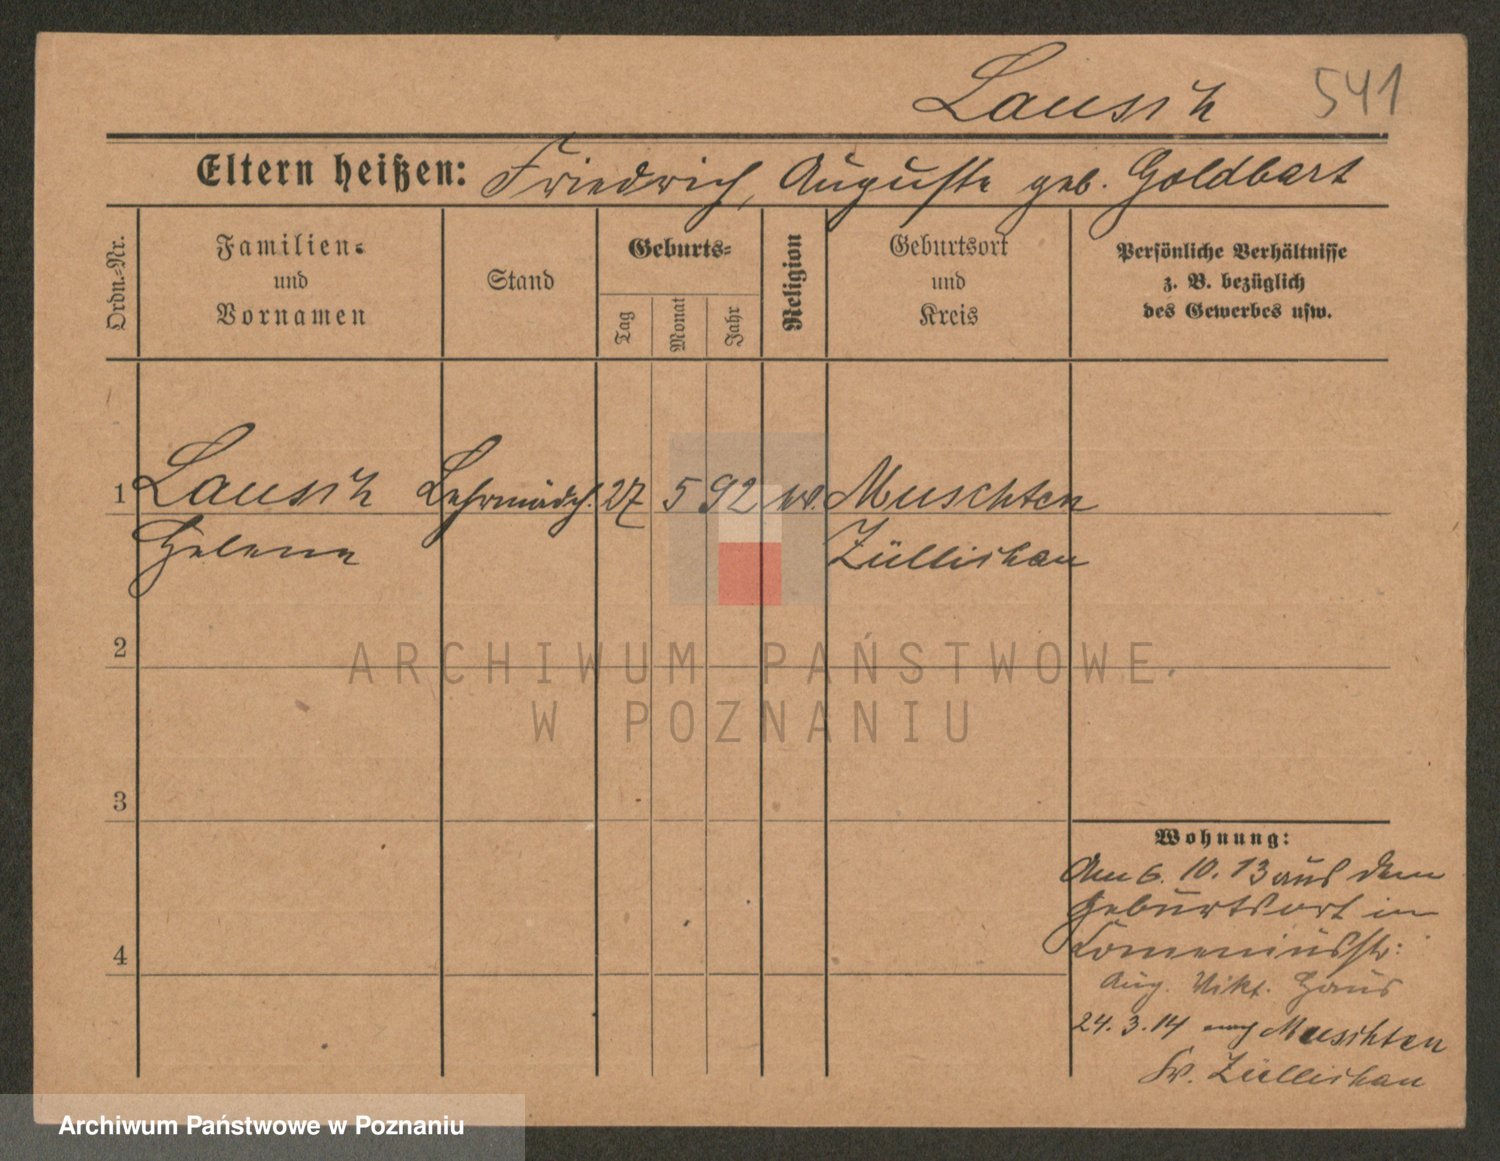 Lausch 541
Eltern heißen: Friedrich, Auguste geb. Goldbart
Ordn.-Nr.
Familien-
und
Vornamen
Stand
Geburts-
Tag
Monat
Jahr
Religion
Geburtsort
und
Kreis
Persönliche Verhältnisse
z. B. bezüglich
des Gewerbes usw.
1 Lausch Lehrmädch. 27 5 92 Muschten
Helene Züllichau
2
3
4
Wohnung:
Am 6. 10. 13 aus dem
Geburtsort in
Comeniusstr:
Aug. Vikt. Haus
24. 3. 14 nach Muschten
Kr. Züllichau
ARCHIWUM PAŃSTWOWE
W POZNANIU
Archiwum Państwowe w Poznaniu